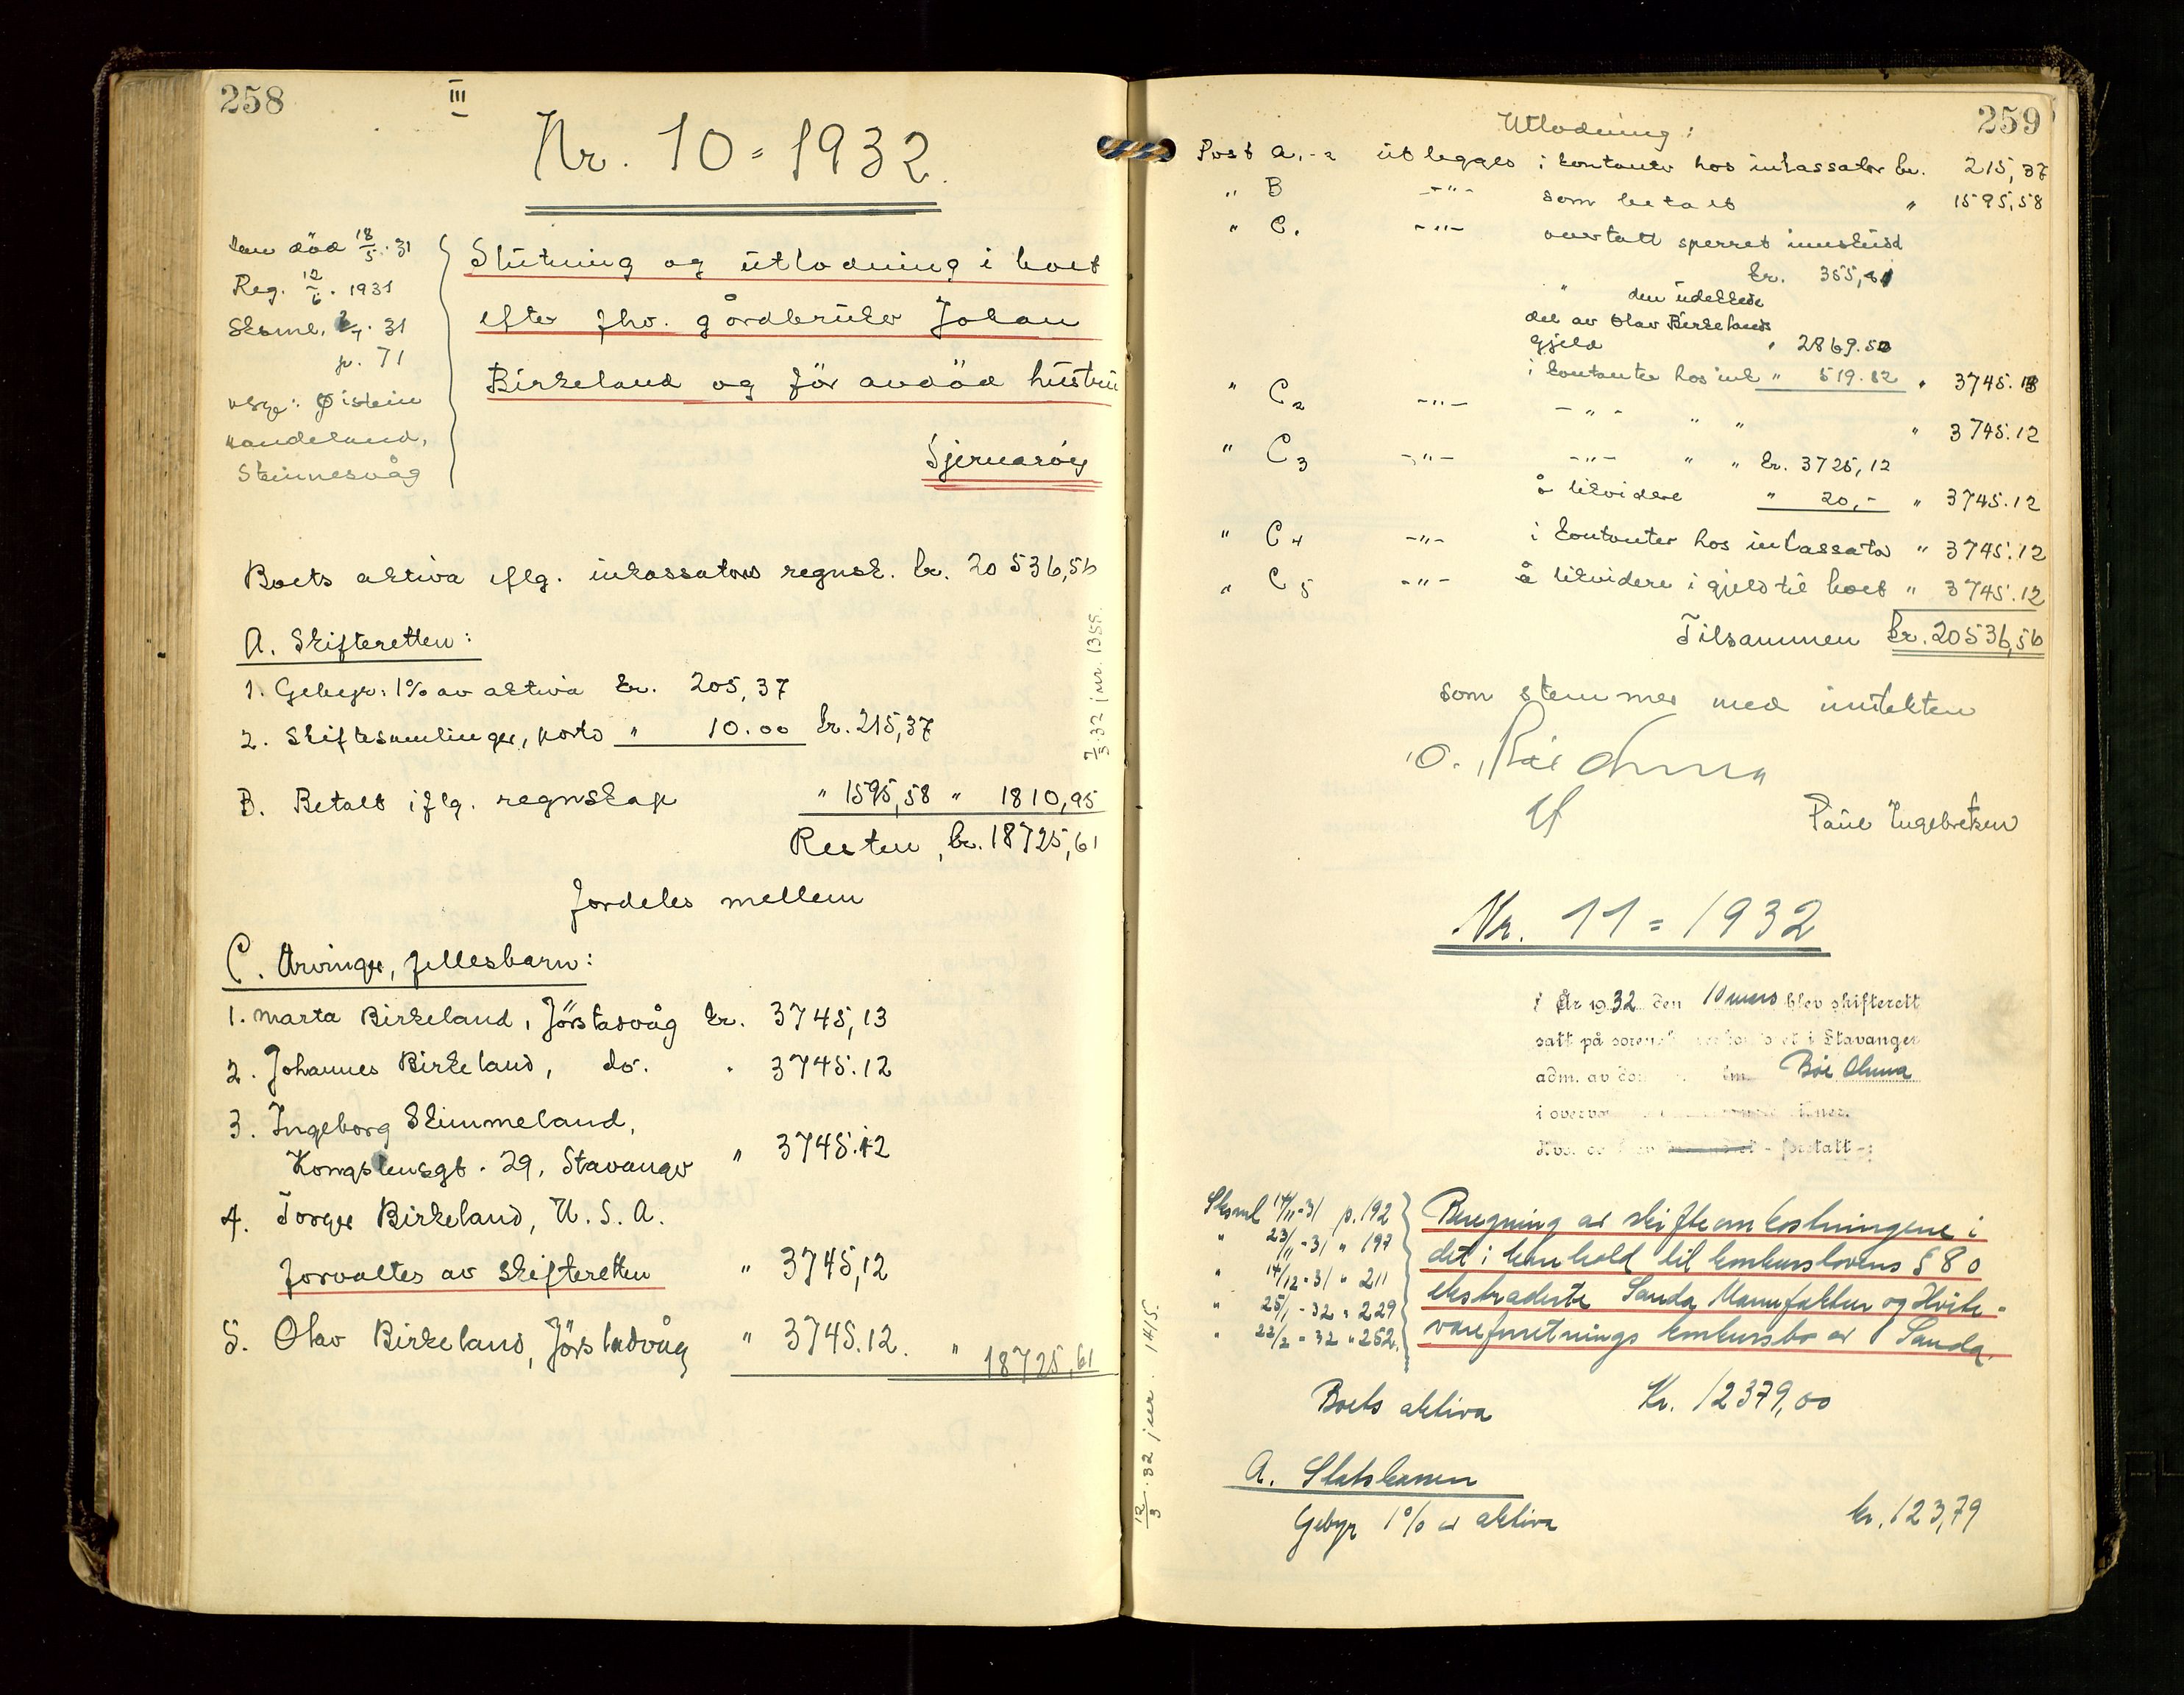 258
III
Nr. 10 = 1932.
død 18/5. 31
Reg. 12/6. 1931
Sksml. 2/7. 31
p. 71
Øistein
Steinnesvåg
Slutning og utlodning i boet
efter fhv. gårdbruker Johan
Birkeland og før avdød hustru
Sjernarøy
Boets aktiva iflg. inkassators regnsk. kr. 20 536,56
A. Skifteretten:
1. Gebyr: 1% av aktiva kr. 205,37
2. Skiftesamlinger, porto " 10.00 kr. 215,37
B. Betalt iflg. regnskap " 1595,58 " 1810,95
Resten, kr. 18725,61
fordeles mellem
C. Arvinger, fellesbarn:
1. Marta Birkeland, Jørstadvåg kr. 3745,13
2. Johannes Birkeland, do. " 3745.12
3. Ingeborg Skimmeland,
Kongstensgt. 29, Stavanger " 3745.12
4. Torger Birkeland, U.S.A.
forvaltes av skifteretten " 3745,12
5. Olav Birkeland, Jørstadvåg " 3745.12. " 18725,61
7/3.32 jnr. 1355.
259
Utlodning:
Post A.1-2 utlegges i kontanter hos inkassator kr. 215,37
" B -"- som betalt " 1595,58
" C1 -"- overtatt sperret innskudd
kr. 355,81
" den udekkede
del av Olav Birkelands
gjeld " 2869.50
i kontanter hos ink " 519.82 " 3745.13
" C2 -"- -"- " " " 3745.12
" C3 -"- -"- " " kr. 3725,12
å likvidere " 20,- " 3745.12
" C4 -"- i kontanter hos inkassator " 3745.12
" C5 -"- å likvidere i gjeld til boet " 3745.12
Tilsammen kr. 20536,56
som stemmer med inntekten
Paul Ingebretsen
Nr. 11 = 1932
År 1932 den 10 mars blev skifterett
satt på i Stavanger
adm. av
i
- foretatt -:
Sksml 14/11-31 p. 192
" 23/11-31 " 197
" 14/12-31 " 211
" 25/1-32 " 229
" 22/2-32 " 252.
Beregning av skifteomkostningene i
det i henhold til konkurslovens § 80
ekstraderte Sanda Manufaktur og Hvite-
vareforretnings konkursbo av Sanda.
Boets aktiva Kr. 12379,00
A. Statskassen
Gebyr 1% av aktiva kr. 123,79
12/3.32 jnr. 1415.